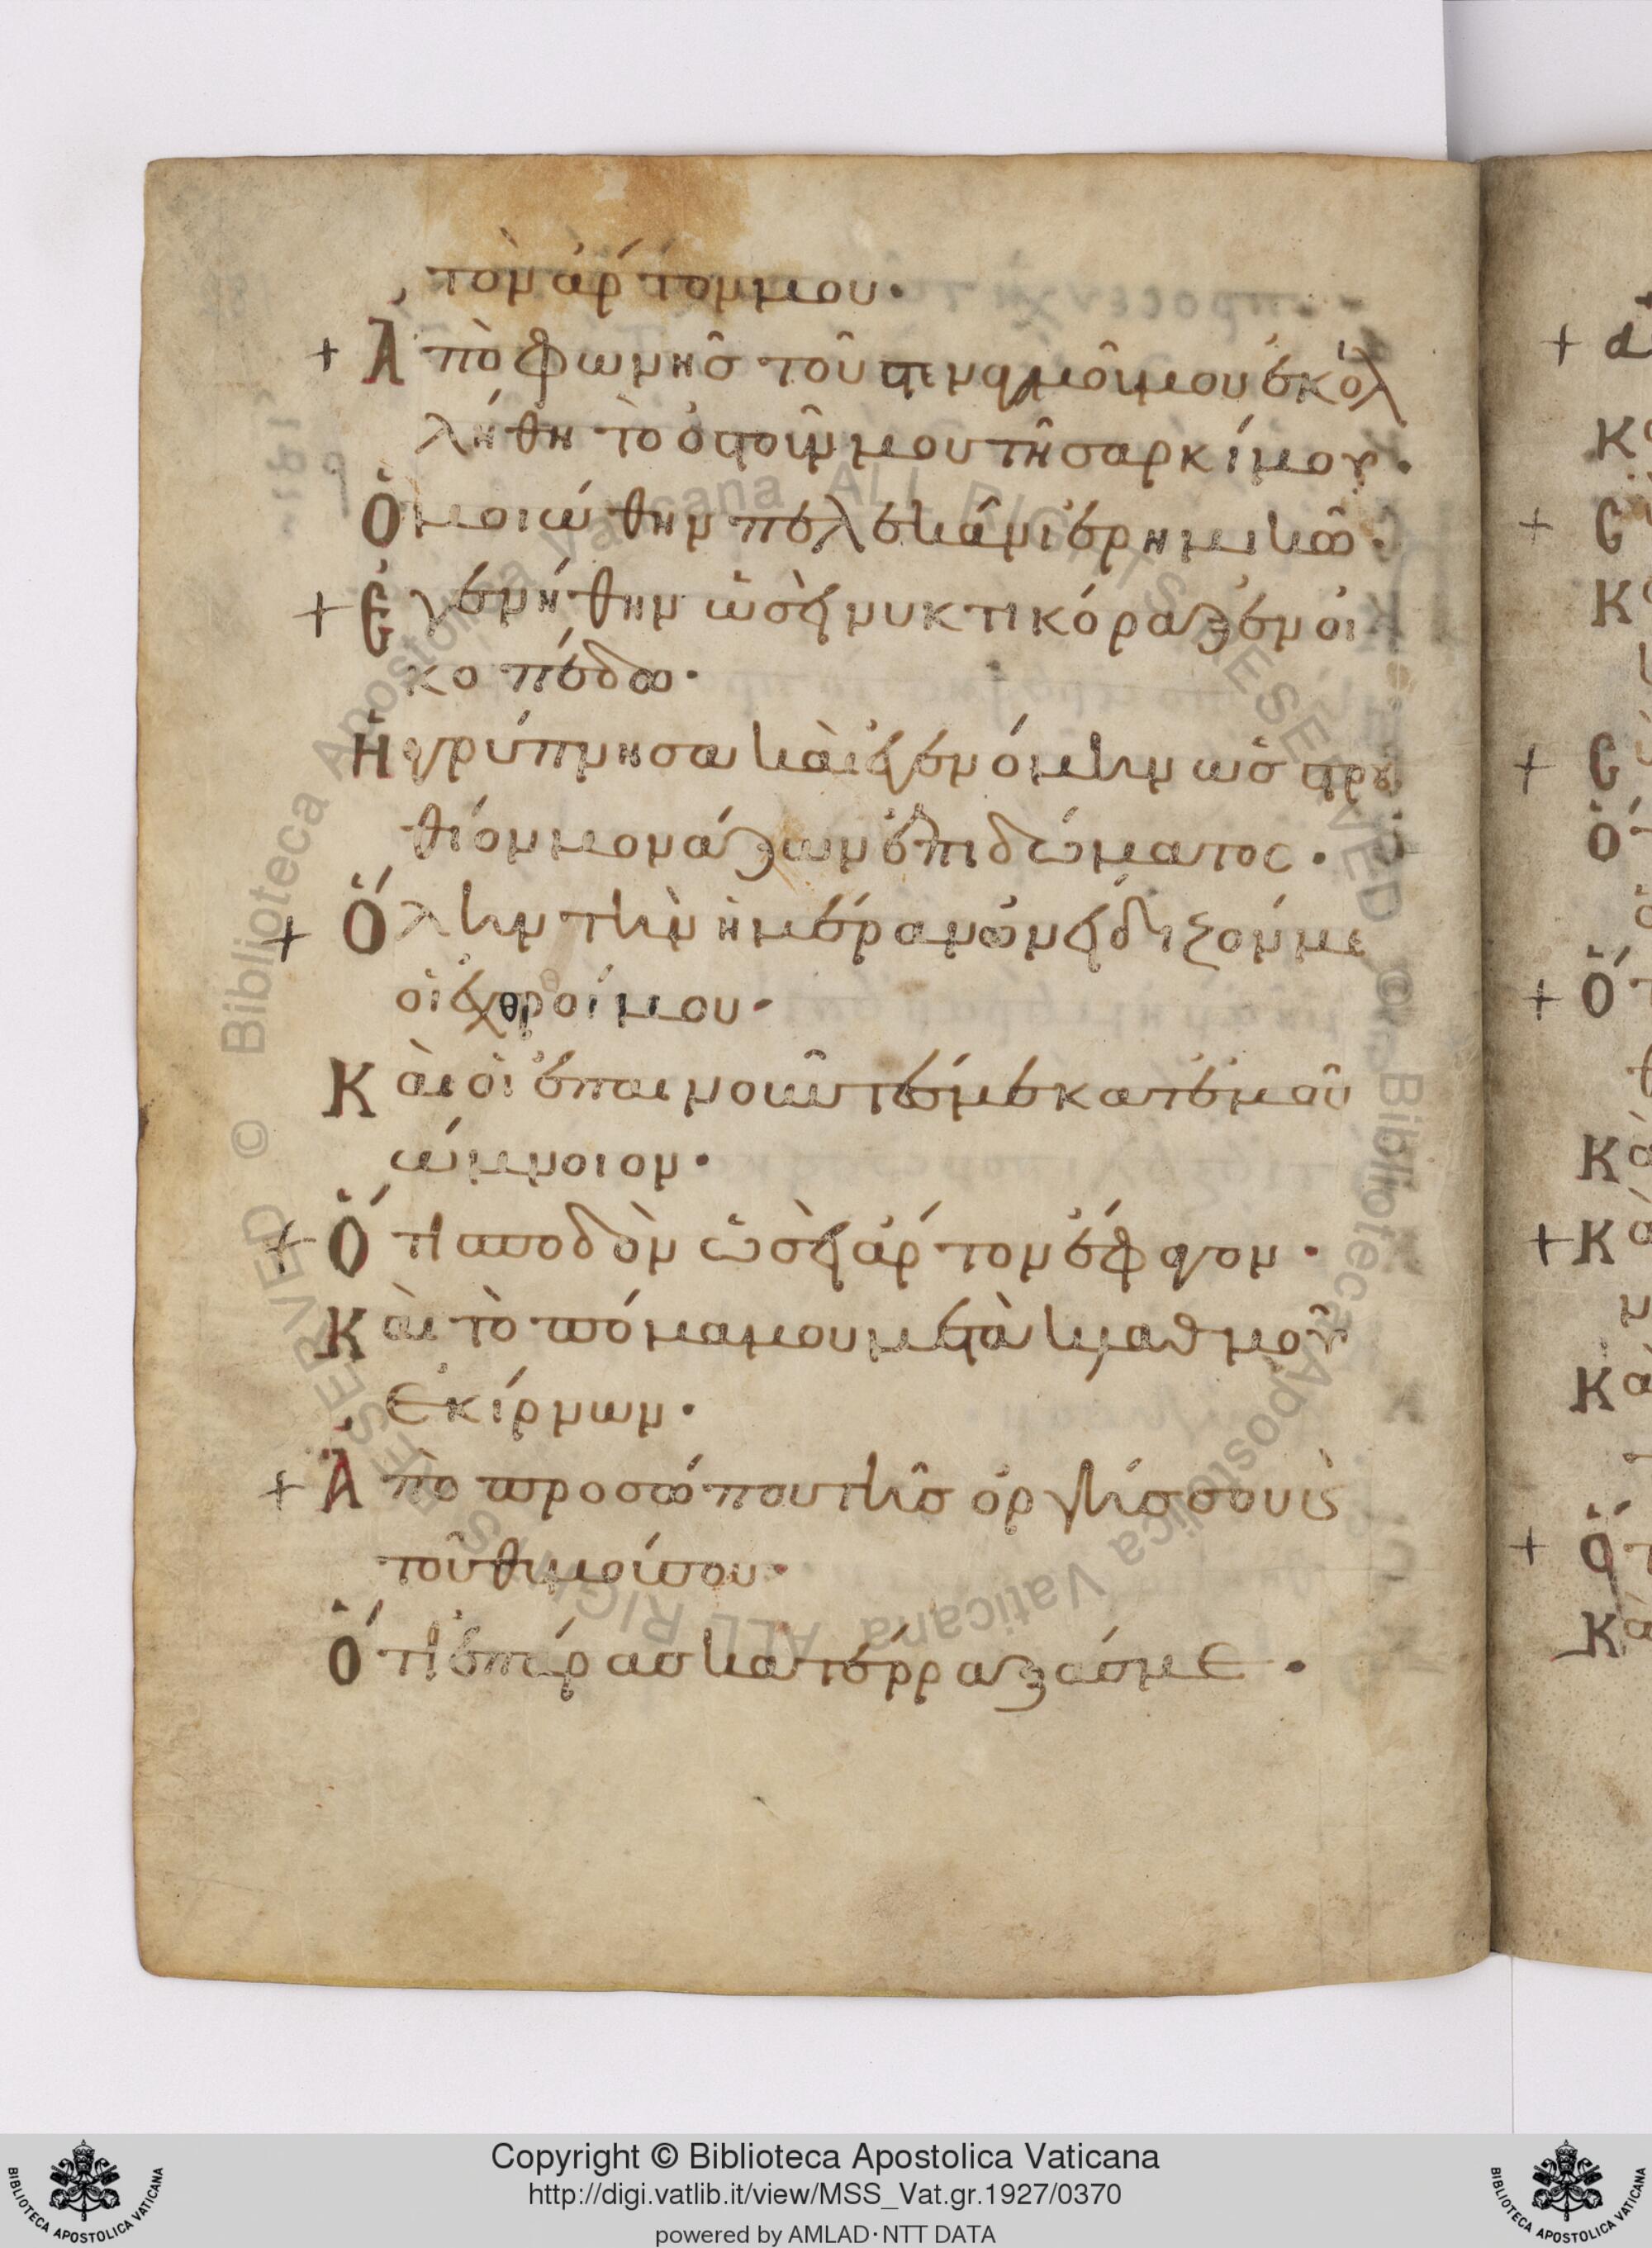 τὸν ἄρτον μου·
+ Ἀπὸ φωνῆς τοῦ στεναγμοῦ μου ἐκόλ
λήθη τὸ ὀστοῦν μου τῇ σαρκί μου·
Ὁμοιώθην πελεκᾶνι ἐρημικῶ·
+ Ἐγενήθην ὡσεὶ νυκτικόραξ ἐν οἰ
κοπέδω·
Ἠγρύπνησα καὶ ἐγενόμην ὡς στρου
θίον μονάζων ἐπι δώματος·
+ Ὅλην τὴν ἡμέραν ὠνείδιζόν με
οἱ ἐχθροί μου·
Καὶ οἱ ἐπαινοῦντέσ με κατ' ἐμοῦ
ὤμνοιον·
+ Ὅτι σποδὸν ὡσεὶ ἄρτον ἔφαγον·
Καὶ τὸ πόμα μου μετὰ κλαυθμοῦ
ἐκίρνων·
+ Ἀπὸ προσώπου τῆς ὀργῆς σου κὶ
τοῦ θυμοῦ σου·
Ὅτι ἐπάρας κατέρραξάς με·
Copyright © Biblioteca Apostolica Vaticana
http://digi.vatlib.it/view/MSS_Vat.gr.1927/0370
powered by AMLAD·NTT DATA